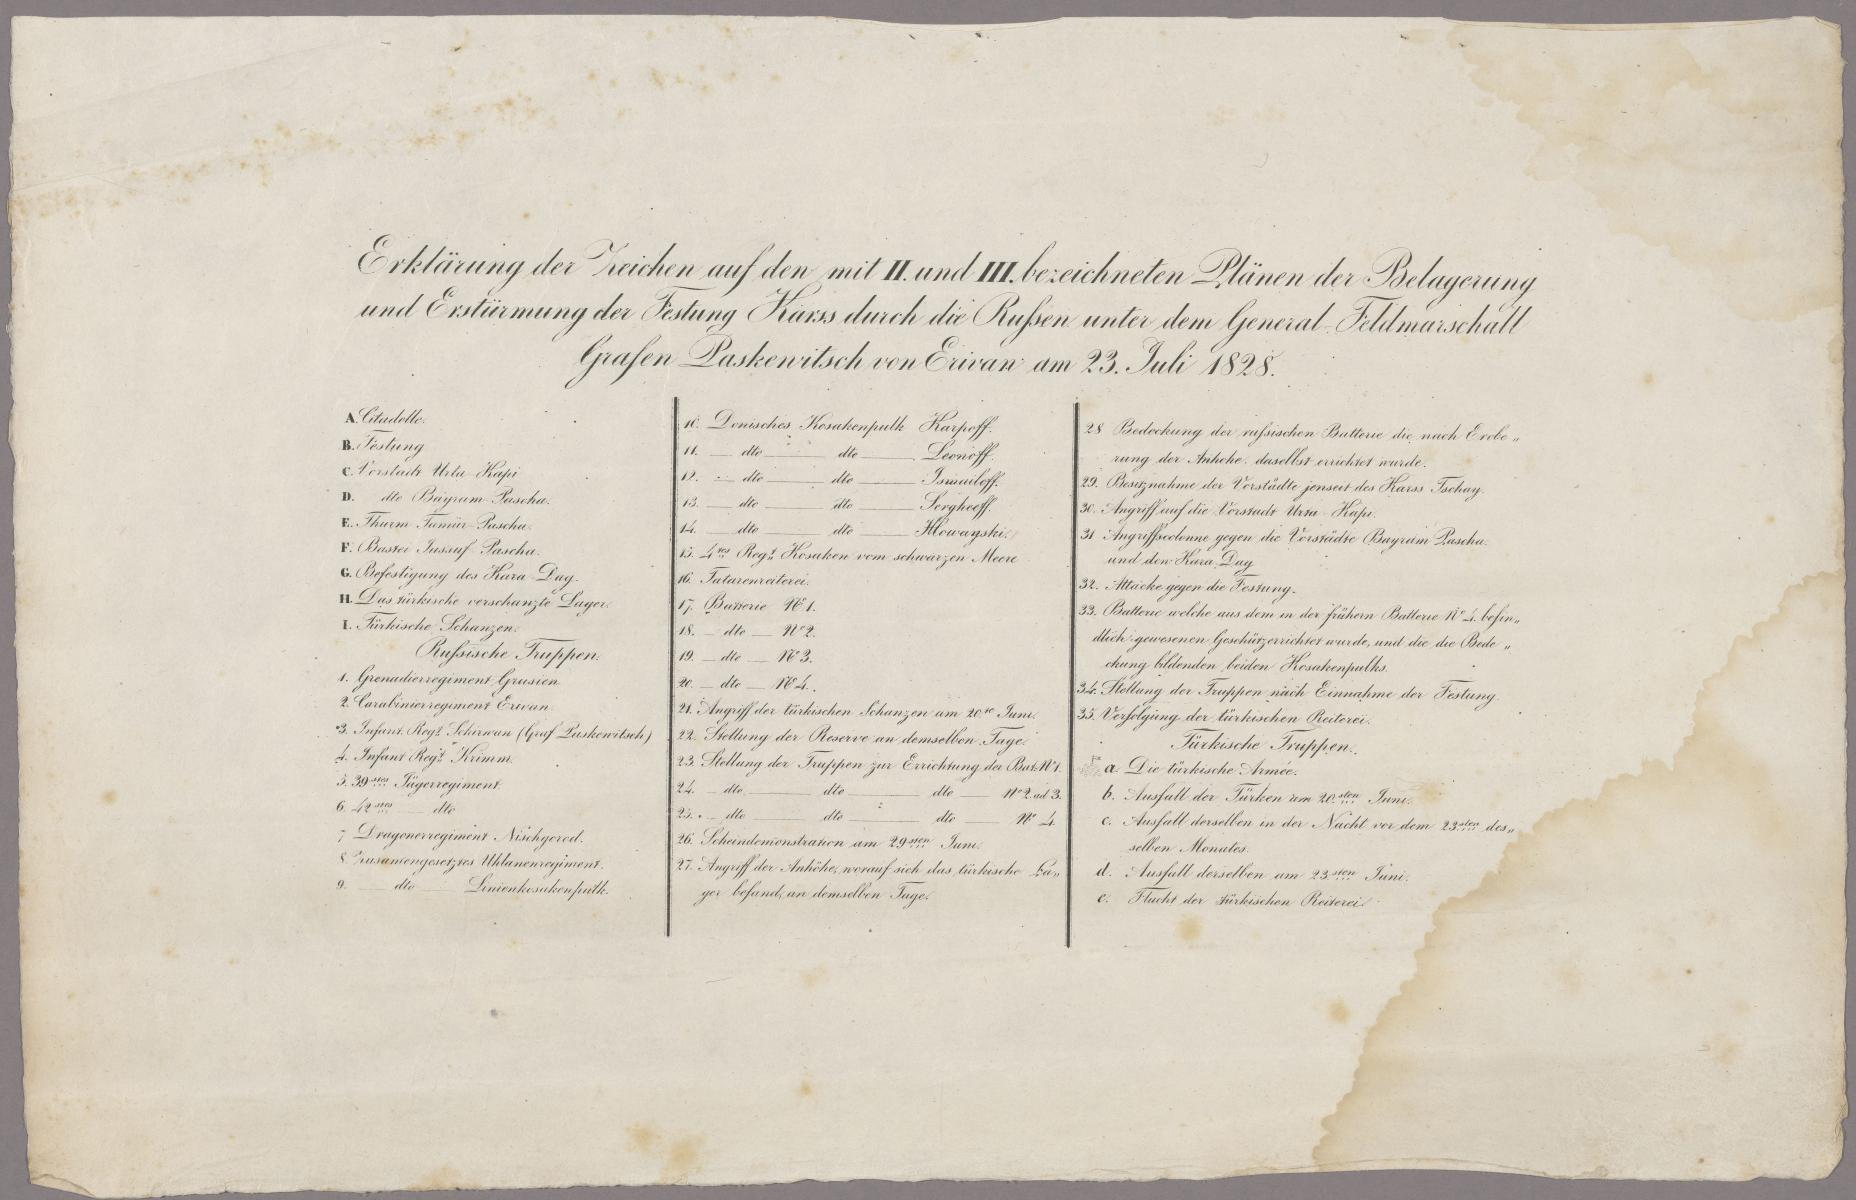 Erklärung der Zeichen auf den mit II. und III. bezeichneten Plänen der Belagerung
und Erstürmung der Festung Karss durch die Rußen unter dem General-Feldmarschall
Grafen Paskewitsch von Erivan am 23. Juli 1828.
A. Citadelle.
B. Festung
C. Vorstadt Urta-Kapi
D. dto Bayram-Pascha.
E. Thurm Tamür-Pascha.
F. Bastei Jussuf-Pascha.
G. Befestigung des Kara-Dag.
H. Das türkische verschanzte Lager.
I. Türkische Schanzen.
Rußische Truppen.
1. Grenadierregiment Grusien
2. Carabinierregiment Erivan.
3. Infant. Regt. Schirwan (Graf Paskewitsch)
4. Infant Regt. Krimm.
5. 39stes Jägerregiment.
6. 42stes —— dto
7 Dragonerregiment Nischgorod.
8 Zusamengesetztes Uhlanenregiment.
9. —— dto —— Linienkosakenpulk.
10. Donisches Kosakenpulk Karpoff.
11. — dto —— dto —— Leonoff.
12. — dto —— dto —— Ismailoff.
13. — dto —— dto —— Sergheeff.
14. — dto —— dto —— Ilowayski.
15. 4tes Regt. Kosaken vom schwarzen Meere
16. Tatarenreiterei.
17. Batterie No 1.
18. — dto — No 2.
19. — dto — No 3.
20. — dto — No 4.
21. Angriff der türkischen Schanzen am 20.te Juni.
22. Stellung der Reserve an demselben Tage.
23. Stellung der Truppen zur Errichtung der Bat. No 1.
24. — dto. —— dto —— dto — No 2. ad 3.
25. — dto —— dto —— dto — No 4.
26. Scheindemonstration am 29sten Juni.
27. Angriff der Anhöhe, worauf sich das türkische La„
ger befand, an demselben Tage.
28 Bedeckung der rußischen Batterie die nach Erobe„
rung der Anhohe daselbst errichtet wurde.
29. Besitznahme der Vorstädte jenseit des Karss Tschay.
30. Angriff auf die Vorstadt Urta-Kapi.
31 Angriffscolonne gegen die Vorstädte Bayram Pascha.
und den Kara-Dag
32. Attacke gegen die Festung.
33. Batterie welche aus dem in der frühern Batterie No 4. befin„
dlich gewesenen Geschütz errichtet wurde, und die die Bede„
ckung bildenden beiden Kosakenpulks.
34. Stellung der Truppen nach Einnahme der Festung
35. Verfolgung der türkischen Reiterei.
Türkische Truppen.
a Die türkische Armée.
b. Ausfall der Türken am 20.sten Juni.
c. Ausfall derselben in der Nacht vor dem 23.sten des„
selben Monates.
d. Ausfall derselben am 23.sten Juni.
e. Flucht der türkischen Reiterei.